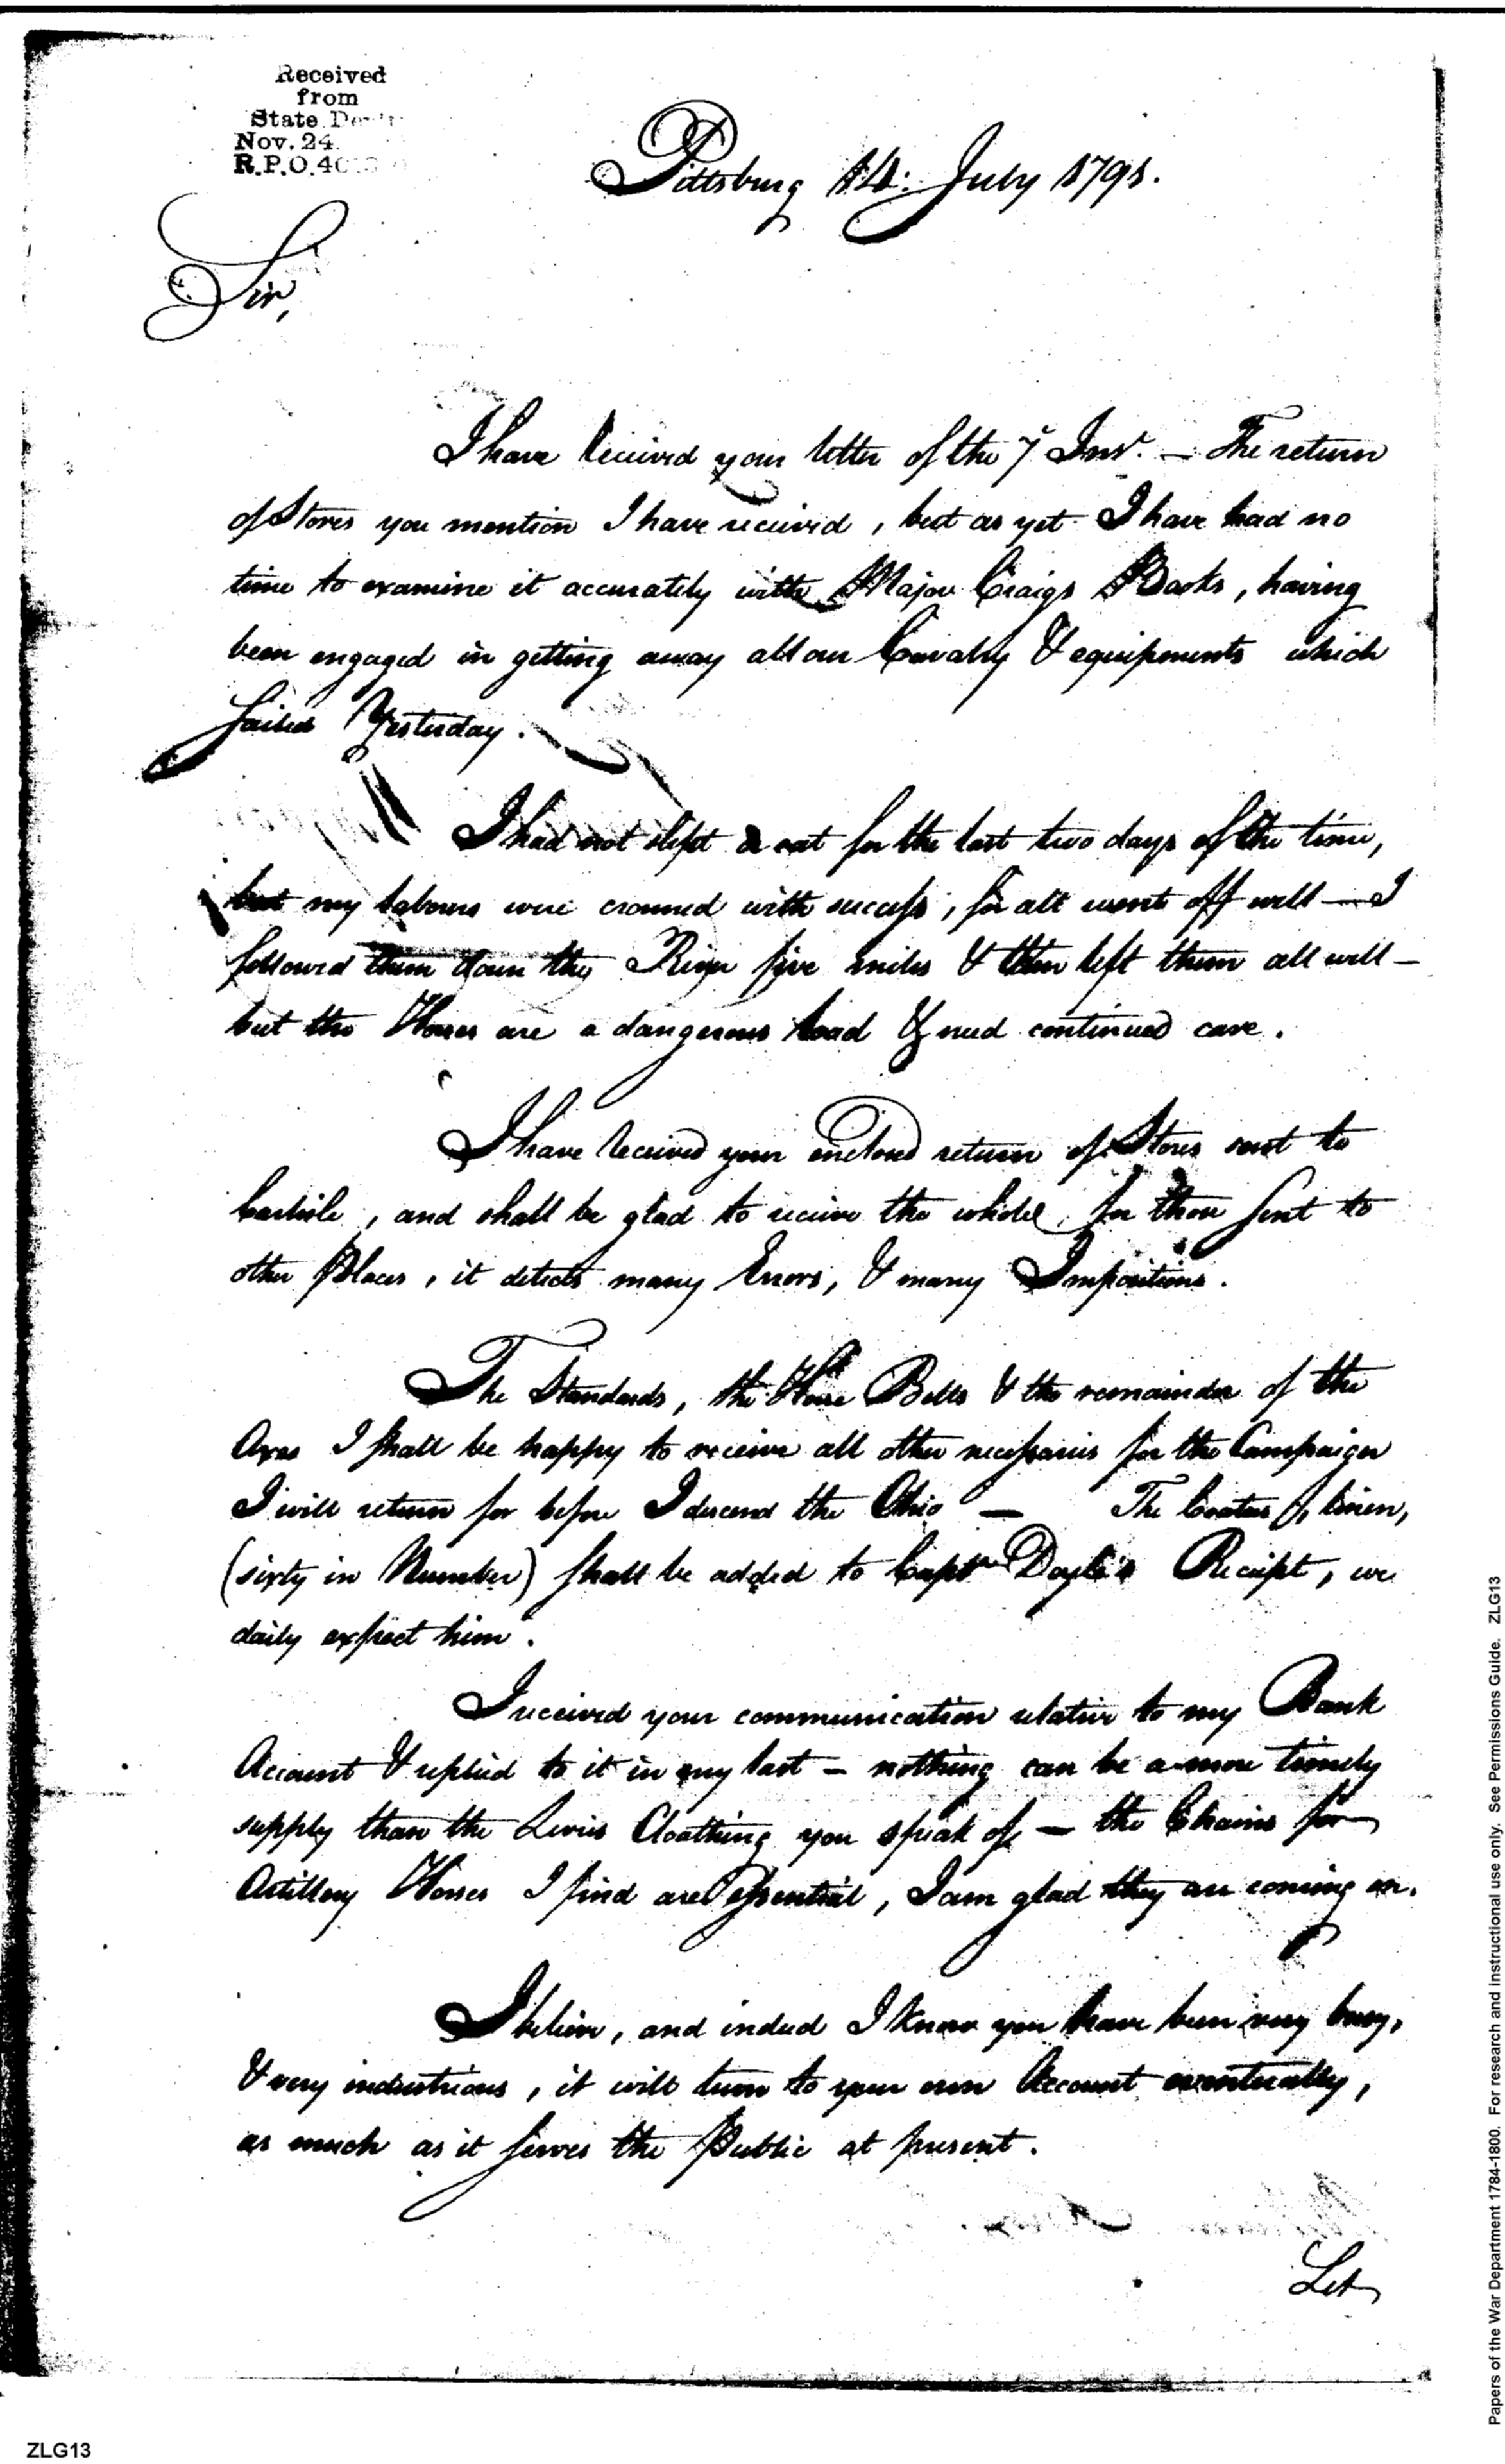 Received
from
State Dept
Nov. 24.
R.P.O. 40
Pittsburg 14: July 1791.
Sir,
I have Received your letter of the 7 Inst. — The return
of Stores you mention I have received, but as yet I have had no
time to examine it accurately with Major Craigs Books, having
been engaged in getting away all our Cavalry & equipments which
Sailed Yesterday.
I had not slept or eat for the last two days of the time,
but my labours were crowned with success, for all went off well — I
followed them down the River five miles & then left them all well —
but the Horses are a dangerous load & need continued care.
I have Received your enclosed return of Stores sent to
Carlisle, and shall be glad to receive the whole, for those sent to
other Places, it detects many Errors, & many Impositions.
The Standards, the Horse Bells & the remainder of the
Axes I shall be happy to receive all other necessaries for the Campaign
I will return for before I descend the Ohio — The Coatees of linen,
(sixty in Number) shall be added to Captn Doyle's Receipt, we
daily expect him.
I received your communication relative to my Bank
Account & replied to it in my last — nothing can be a more timely
supply than the Levies Cloathing you speak of, — the Chains for
Artillery Horses I find are Essential, I am glad they are coming on.
I believe, and indeed I know you have been very busy,
& very industrious, it will turn to your own Account eventually,
as much as it serves the Public at present.
Let
Papers of the War Department 1784-1800. For research and instructional use only. See Permissions Guide. ZLG13
ZLG13